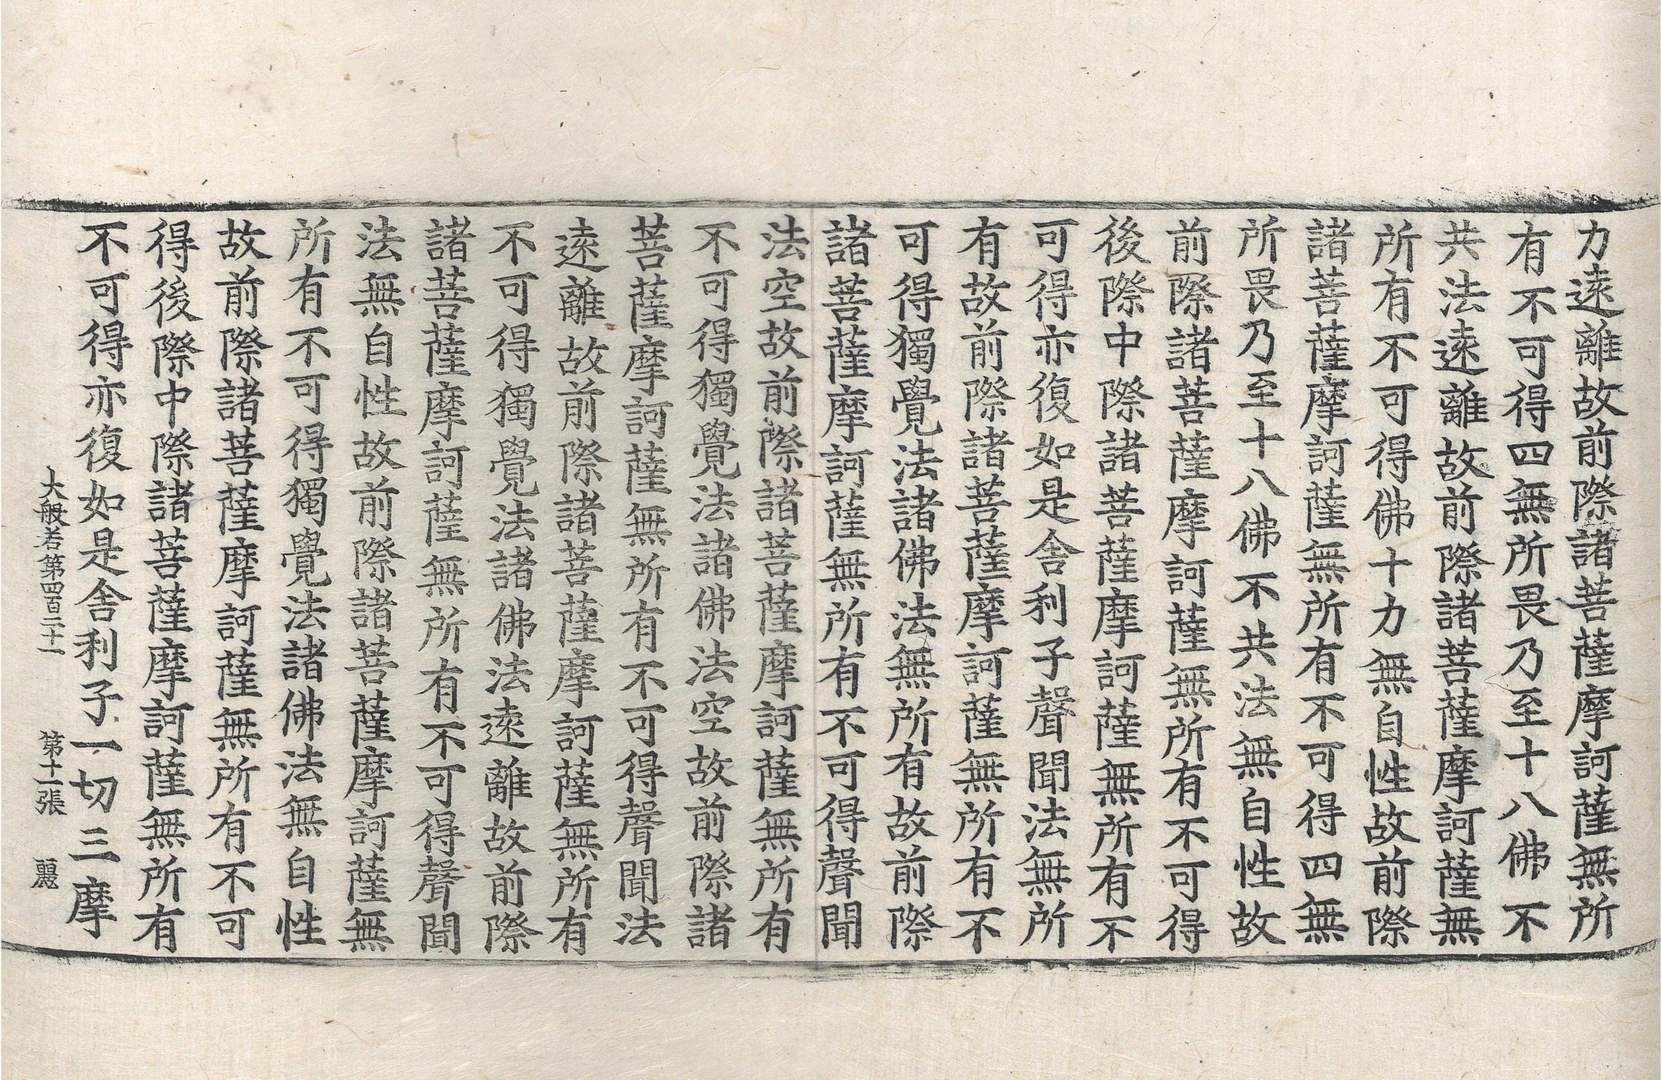 力遠離故前際諸菩薩摩訶薩無所
有不可得四無所畏乃至十八佛不
共法遠離故前際諸菩薩摩訶薩無
所有不可得佛十力無自性故前際
諸菩薩摩訶薩無所有不可得四無
所畏乃至十八佛不共法無自性故
前際諸菩薩摩訶薩無所有不可得
後際中際諸菩薩摩訶薩無所有不
可得亦復如是舍利子聲聞法無所
有故前際諸菩薩摩訶薩無所有不
可得獨覺法諸佛法無所有故前際
諸菩薩摩訶薩無所有不可得聲聞
法空故前際諸菩薩摩訶薩無所有
不可得獨覺法諸佛法空故前際諸
菩薩摩訶薩無所有不可得聲聞法
遠離故前際諸菩薩摩訶薩無所有
不可得獨覺法諸佛法遠離故前際
諸菩薩摩訶薩無所有不可得聲聞
法無自性故前際諸菩薩摩訶薩無
所有不可得獨覺法諸佛法無自性
故前際諸菩薩摩訶薩無所有不可
得後際中際諸菩薩摩訶薩無所有
不可得亦復如是舍利子一切三摩
大般若第四百二十一 第十一張 麗